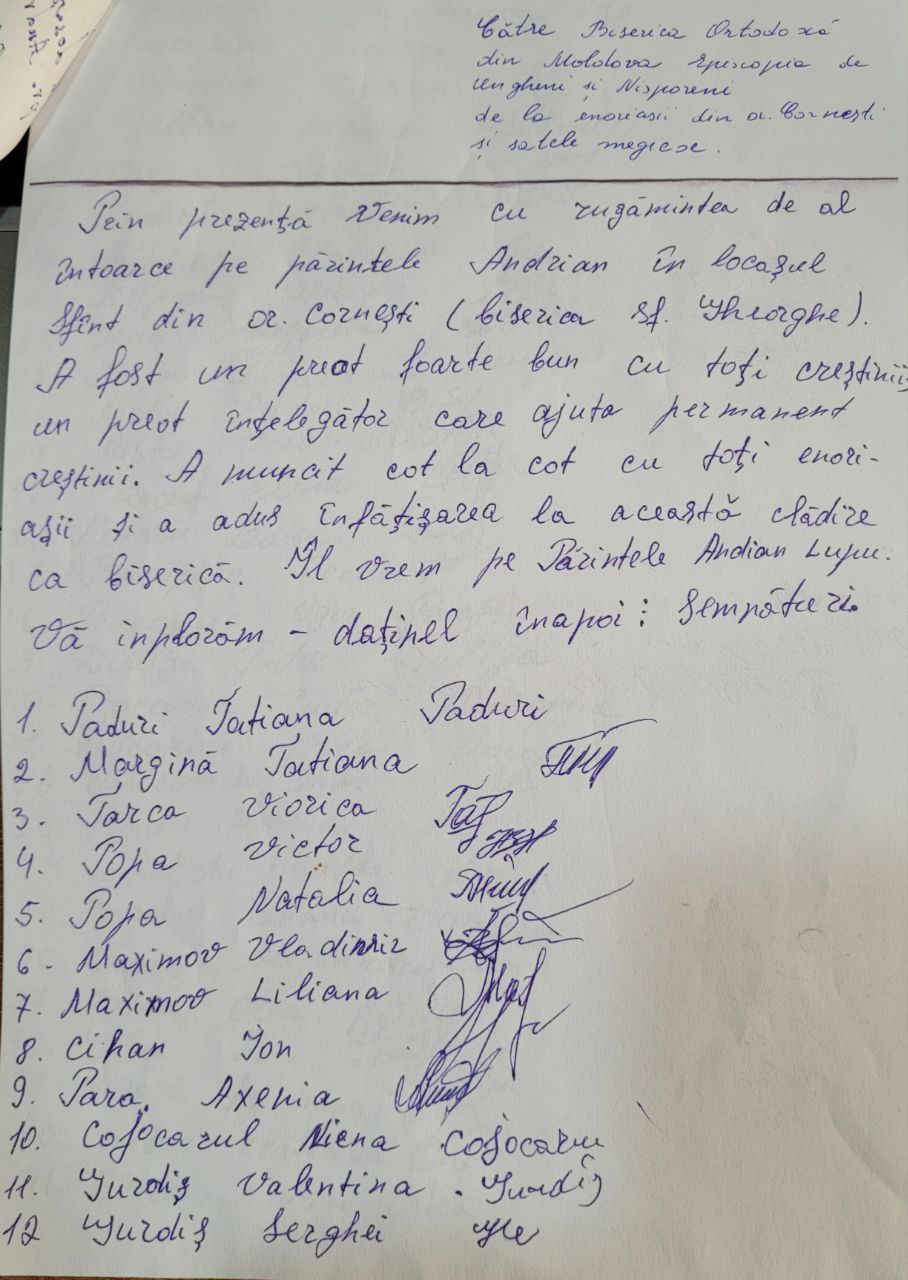 Către Biserica Ortodoxă
din Moldova Episcopia de
Ungheni și Nisporeni
de la enoriasii din or. Cornești
și satele megieșe.
Prin prezență venim cu rugămintea de al
întoarce pe părintele Andrian în locașul
Sfînt din or. Cornești (biserica Sf. Gheorghe).
A fost un preot foarte bun cu toți creștinii,
un preot înțelegător care ajuta permanent
creștinii. A muncit cot la cot cu toți enori-
așii și a adus înfățișarea la această clădire
ca biserică. Îl vrem pe Părintele Andian Lupu.
Vă inplorăm - daținel înapoi: Semnături.
1. Paduri Tatiana Paduri
2. Margină Tatiana
3. Țarca Viorica
4. Popa Victor
5. Popa Natalia
6. Maximov Vladimir
7. Maximov Liliana
8. Ciban Ion
9. Para Axenia
10. Cojocarul Cojocaru
11. Gurdiș Valentina. Gurdiș
12 Gurdiș Serghei